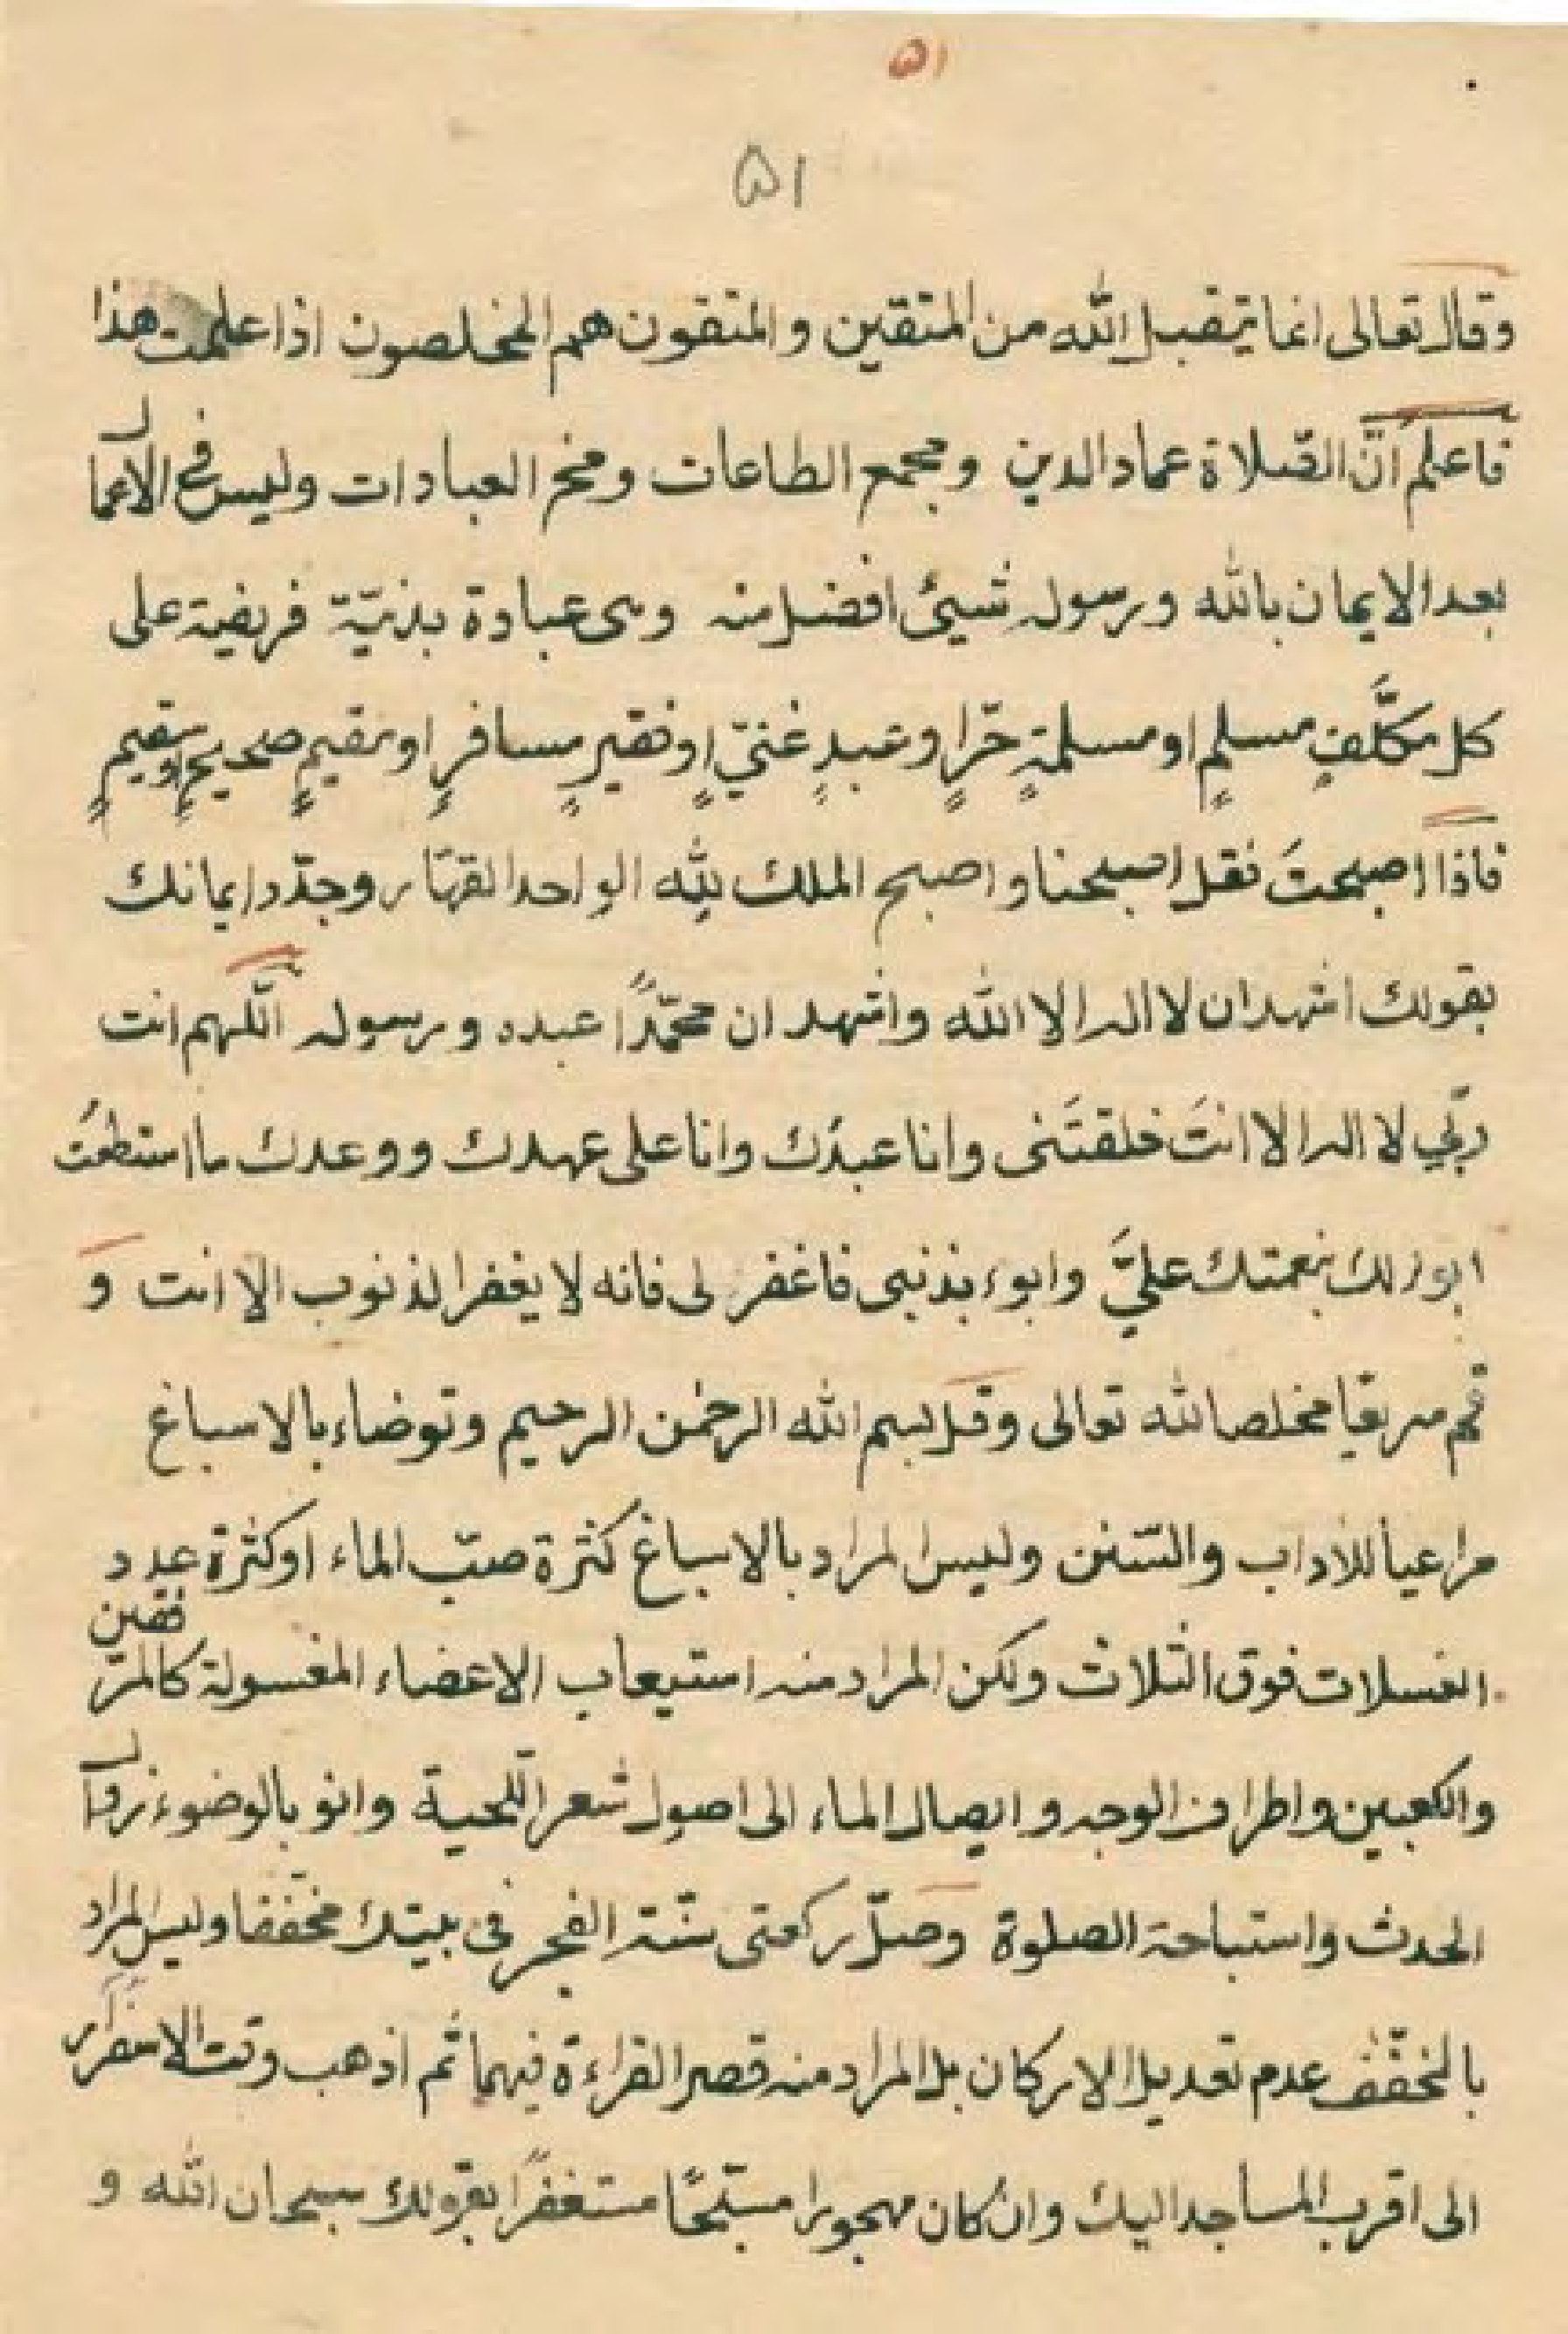 ۵۱
۵۱
وقال تعالى انما يتقبل الله من المتقين والمتقون هم المخلصون اذا علمت هذا
فاعلم انّ الصّلاة عماد الدين ومجمع الطاعات ومخ العبادات وليس فى الاعمال
بعد الايمان بالله ورسوله شيئ افضل منه وهى عبادة بدنيّة فريضة على
كل مكلَّفٍ مسلمٍ او مسلمةٍ حرٍّ او عبدٍ غنيٍّ او فقيرٍ مسافرٍ او مقيمٍ صحيحٍ او سقيمٍ
فاذا اصبحتَ فقل اصبحنا واصبح الملك لِلّٰه الواحد القهّار وجدّد ايمانك
بقولك اشهد ان لا اله الا الله واشهد ان محمّدًا عبده ورسوله اللّهم انت
ربّي لا اله الا انتَ خلقتَنى وانا عبدُك وانا على عهدك ووعدك ما استطعتُ
ابوء لك بنعمتك عليَّ وابوء بذنبى فاغفر لى فانه لا يغفر الذنوب الا انت و
قم سريعًا مخلصا لله تعالى وقل بسم الله الرحمٰن الرحيم وتوضاء بالاسباغ
مراعياً للاداب والسّنن وليس المراد بالاسباغ كثرة صبّ الماء او كثرة عدد
الغسلات فوق الثلاث ولكن المراد منه استيعاب الاعضاء المغسولة كالمرفقين
والكعبين واطراف الوجه وايصال الماء الى اصول شعر اللّحية وانو بالوضوء زوال
الحدث واستباحة الصلوة وصلّ ركعتى سنّة الفجر فى بيتك مخفّفا وليس المراد
بالمخفّف عدم تعديل الاركان بل المراد منه قصر القراءة فيهما ثم اذهب وقت الاسفرار
الى اقرب المساجد اليك وان كان مهجورا مسبّحًا مستغفرًا بقولك سبحان الله و